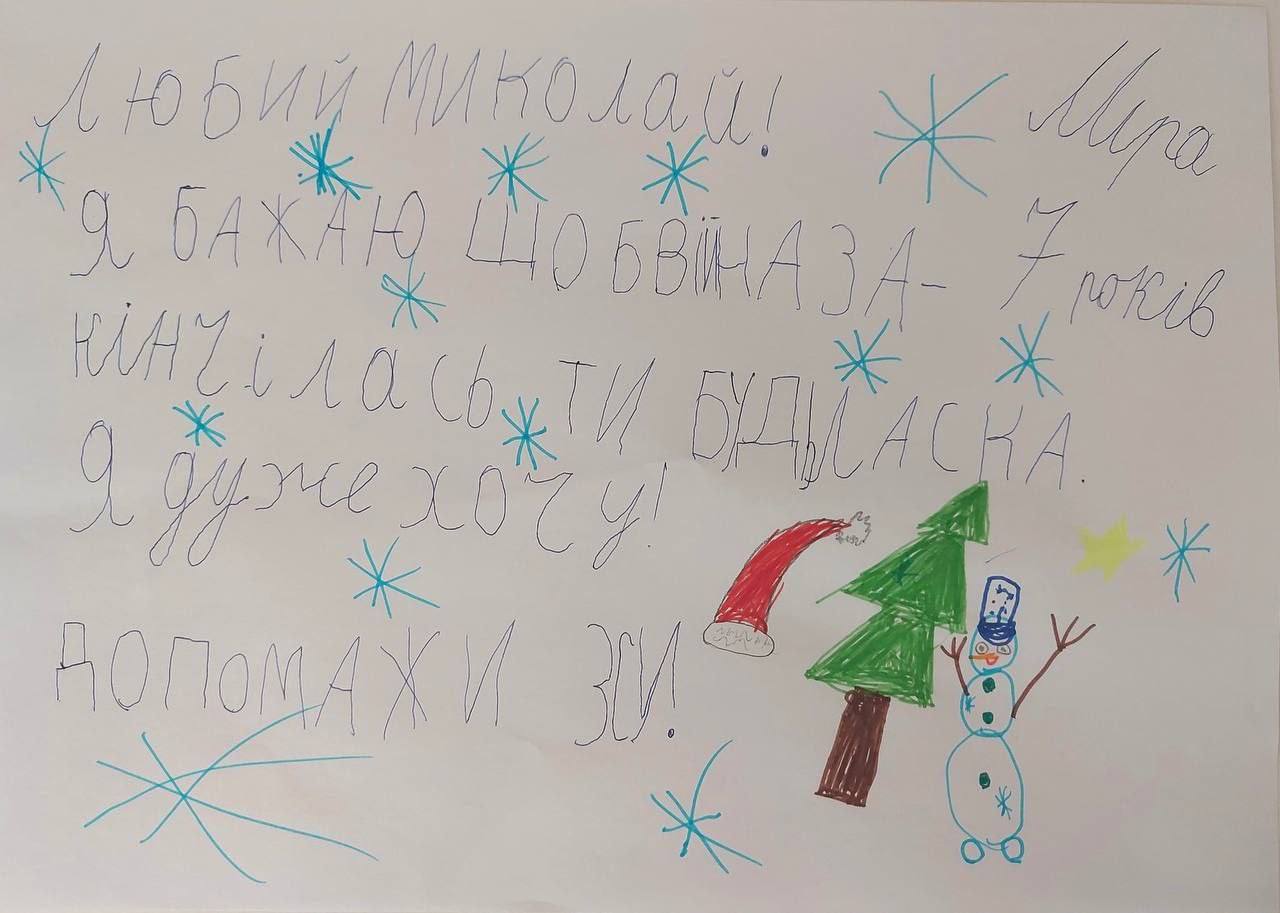 ЛЮБИЙ МИКОЛАЙ!
Міра
Я БАЖАЮ ЩОБ ВІЙНА ЗА-
7 років
КІНЧіЛАСЬ ТИ БУДЬЛАСКА.
Я дуже хочу!
ДОПОМАЖИ ЗСУ!